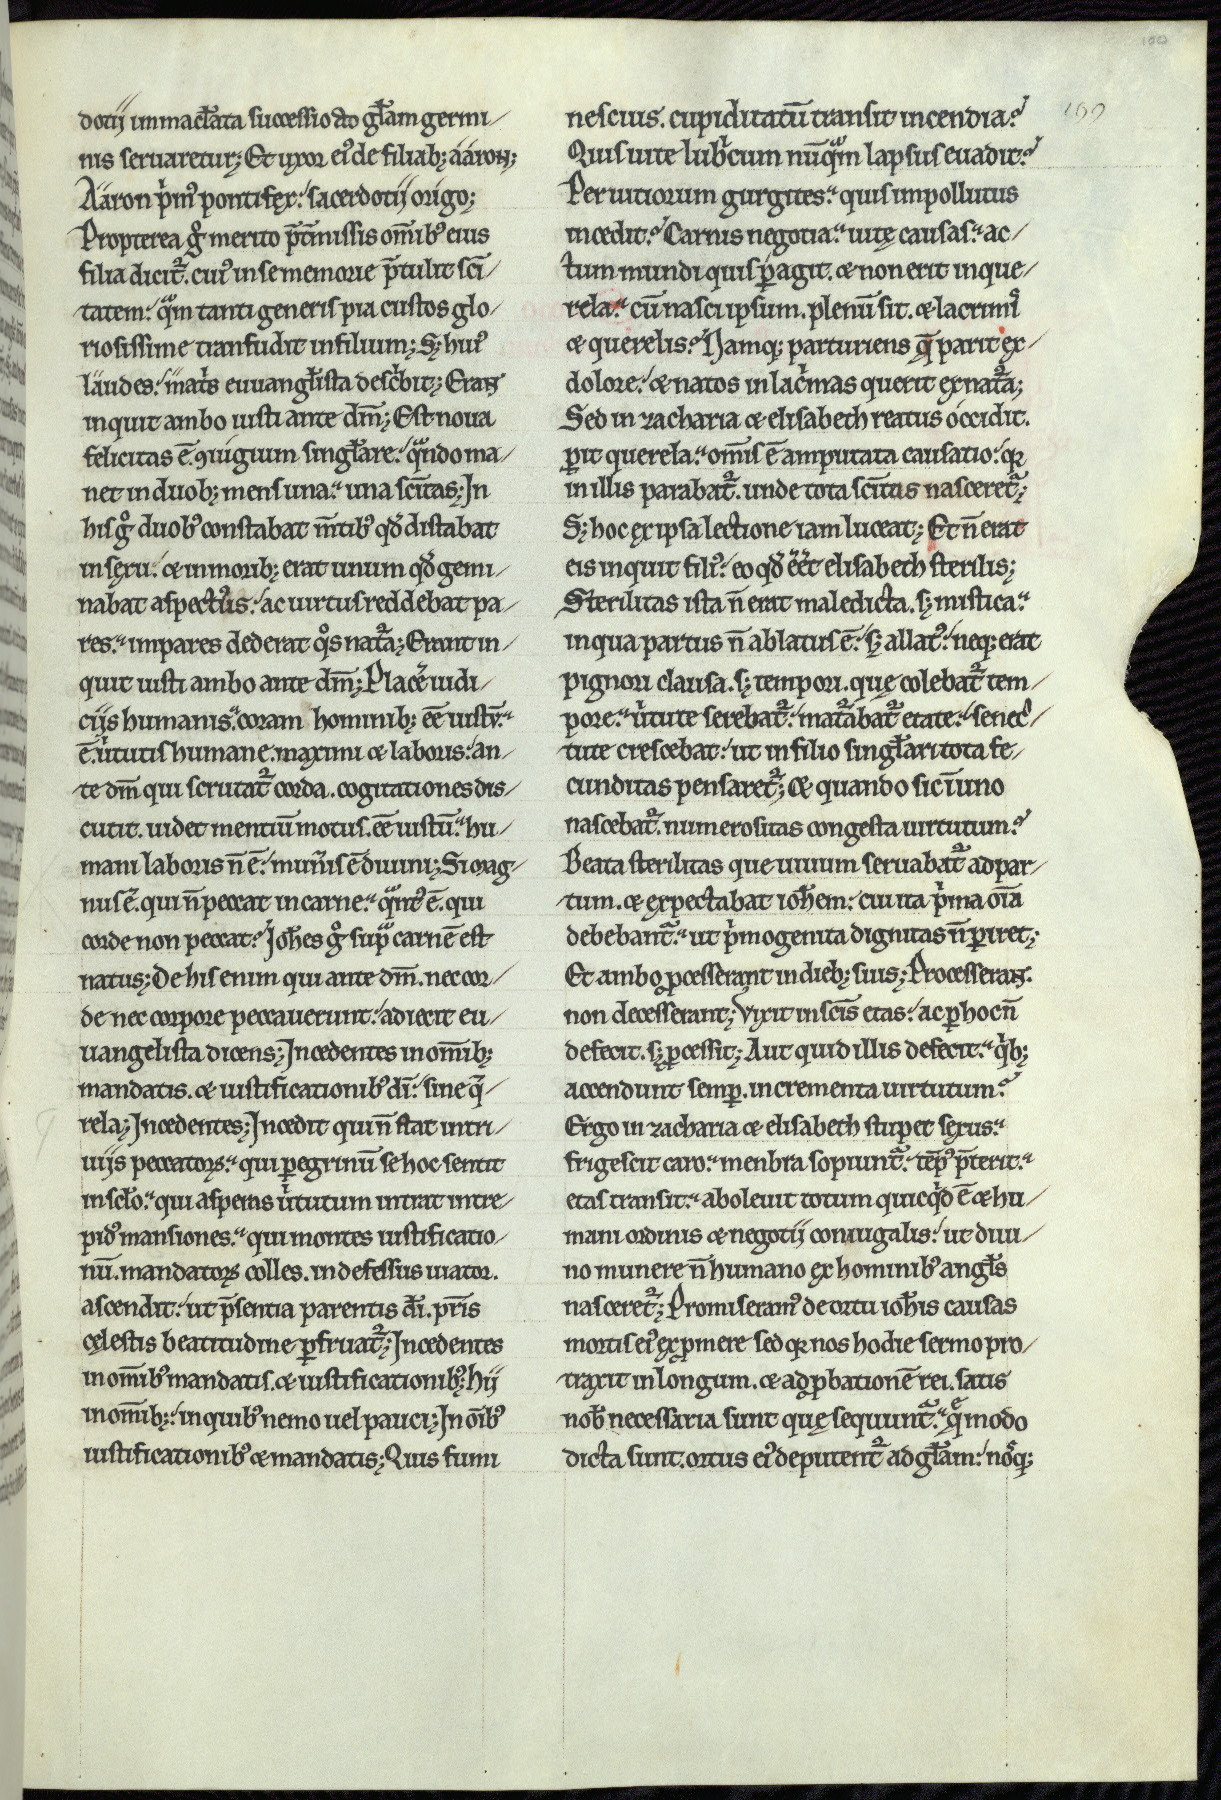 dotij immaclata successio ad glam germi/
nis seruaretur; Et uxor ei' de filiab; ááron;
Ááron prim' pontifex: sacerdotij origo;
Propterea g merito ptmissis omib' eius
filia dicit. cui' in se memorie ptulit sci/
tatem: qm tanti generis pia custos glo/
riosissime tranfudit in filium; S; hui'
laudes: matis euuanglista desc'bit; Erant
inquit ambo iusti ante dm; Est noua
felicitas ē 9iugium singlare: qndo ma/
net in duob; mens una: una scitas; In
his g duob' constabat mtib' qd distabat
in sexu: & in morib; erat unum qd gemi/
nabat aspectus: ac uirtus reddebat pa/
res: impares dederat qs nata; Erant in/
quit iusti ambo ante dm; Place iudi/
ciis humanis: coram hominib; ēe iustū:
ē utis humane. maximi & laboris: an/
te dm qui scrutat corda. cogitationes dis/
cutit. uidet mentiū motus. ēe iustū: hu/
mani laboris n̄ ē: mun̄is ē diuini; Si mag/
nus ē. qui n̄ peccat in carne: qnt' ē. qui
corde non peccat? Iohes g sup carnē est
natus; De his enim qui ante dm. nec cor/
de nec corpore peccauerunt: adiecit eu/
uangelista dicens; Incedentes in omib;
mandatis. & iustificationib' di: sine q/
rela; Incedentes; Incedit qui n̄ stat in tri/
uijs peccatorꝝ: qui pegrinū se hoc sentit
in sclo: qui asperas utum intrat intre/
pid' mansiones: qui montes iustificatio/
nū. mandatorꝝ colles. indefessus uiator.
ascendit: ut psentia parentis di. pris
celestis beatitudine pfruat; Incedentes
in omib' mandatis. & iustificationib'; hij
in omib;: in quib' nemo uel pauci; In oib'
iustificationib' & mandatis; Quis fumi
nescius. cupiditatū transit incendia?
Quis uite lubcum nūqm lapsus euadit?
Per uitiorum gurgites: quis impollutus
incedit? Carnis negotia: uite causas: ac/
tum mundi quis pagit. & non erit in que/
rela: cū nasci ipsum. plenū sit. & lacrimis
& querelis? Namq; parturiens q parit ex/
dolore: & natos in lacmas querit ex nata;
Sed in zacharia & elisabeth reatus occidit.
pit querela: omis ē amputata causatio: qr
in illis parabat. unde tota scitas nasceret;
S; hoc ex ipsa lectione iam luceat; Et n̄ erat
eis inquit fili': eo qd ēēt elisabeth sterilis;
Sterilitas ista n̄ erat maledicta. s; mistica:
in qua partus n̄ ablatus ē: s; allat': neq; erat
pignori clausa. s; tempori. que colebat tem/
pore: utute serebat: matabat etate: senec/
tute crescebat: ut in filio singlari tota fe/
cunditas pensaret; & quando sic ī uno
nascebat. numerositas congesta uirtutum?
Beata sterilitas que uiuum seruabat ad par/
tum. & expectabat iohem: cui ita pma oīa
debebant: ut pmogenita dignitas n̄ piret;
Et ambo pcesserant in dieb; suis; Processerant.
non decesserant; Vixit in scis etas: ac p hoc n̄
defecit. s; pcessit; Aut quid illis defecit: qb;
accendunt semp. incrementa uirtutum?
Ergo in zacharia & elisabeth stupet sexus:
frigescit caro: menbra sopiunt: tēp' pterit:
etas transit: aboleuit totum quicqd ē & hu/
mani ordinis & negotij coniugalis: ut diui/
no munere n̄ humano ex hominib' angls
nasceret; Promiseram' de ortu iohis causas
mortis ei' exprimere sed qr nos hodie sermo pro/
traxit in longum. & ad pbationē rei. satis
nob necessaria sunt que sequunt: qmodo
dicta sunt. ortus ei' deputent ad glam: nosq;